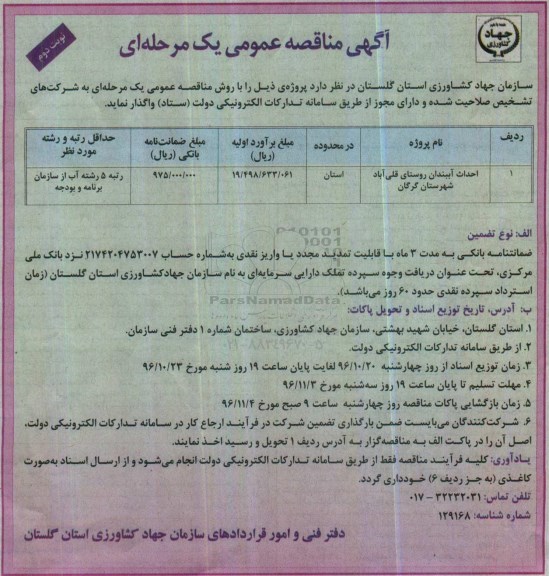 جهاد کشاورزی
نوبت دوم
آگهی مناقصه عمومی یک مرحله‌ای
سازمان جهاد کشاورزی استان گلستان در نظر دارد پروژه‌ی ذیل را با روش مناقصه عمومی یک مرحله‌ای به شرکت‌های
تشخیص صلاحیت شده و دارای مجوز از طریق سامانه تدارکات الکترونیکی دولت (ستاد) واگذار نماید.
ردیف	نام پروژه	در محدوده	مبلغ برآورد اولیه (ریال)	مبلغ ضمانت‌نامه بانکی (ریال)	حداقل رتبه و رشته مورد نظر
۱	احداث آببندان روستای قلی‌آباد شهرستان گرگان	استان	۱۹/۴۹۸/۶۳۳/۰۶۱	۹۷۵/۰۰۰/۰۰۰	رتبه ۵ رشته آب از سازمان برنامه و بودجه
الف: نوع تضمین
ضمانتنامه بانکی به مدت ۳ ماه با قابلیت تمدید مجدد یا واریز نقدی به‌شماره حساب ۲۱۷۴۲۰۴۷۵۳۰۰۷ نزد بانک ملی
مرکزی، تحت عنوان دریافت وجوه سپرده تملک دارایی سرمایه‌ای به نام سازمان جهادکشاورزی استان گلستان (زمان
استرداد سپرده نقدی حدود ۶۰ روز می‌باشد).
ب: آدرس، تاریخ توزیع اسناد و تحویل پاکات:
۱. استان گلستان، خیابان شهید بهشتی، سازمان جهاد کشاورزی، ساختمان شماره ۱ دفتر فنی سازمان.
۲. از طریق سامانه تدارکات الکترونیکی دولت.
۳. زمان توزیع اسناد از روز چهارشنبه ۹۶/۱۰/۲۰ لغایت پایان ساعت ۱۹ روز شنبه مورخ ۹۶/۱۰/۲۳
۴. مهلت تسلیم تا پایان ساعت ۱۹ روز سه‌شنبه مورخ ۹۶/۱۱/۳
۵. زمان بازگشایی پاکات مناقصه روز چهارشنبه ساعت ۹ صبح مورخ ۹۶/۱۱/۴
۶. شرکت‌کنندگان می‌بایست ضمن بارگذاری تضمین شرکت در فرآیند ارجاع کار در سامانه تدارکات الکترونیکی دولت،
اصل آن را در پاکت الف به مناقصه‌گزار به آدرس ردیف ۱ تحویل و رسید اخذ نمایند.
یادآوری: کلیه فرآیند مناقصه فقط از طریق سامانه تدارکات الکترونیکی دولت انجام می‌شود و از ارسال اسناد به‌صورت
کاغذی (به جز ردیف ۶) خودداری گردد.
تلفن تماس: ۳۲۲۳۲۰۳۱ - ۰۱۷
شماره شناسه: ۱۲۹۱۶۸
دفتر فنی و امور قراردادهای سازمان جهاد کشاورزی استان گلستان
ParsNamadData